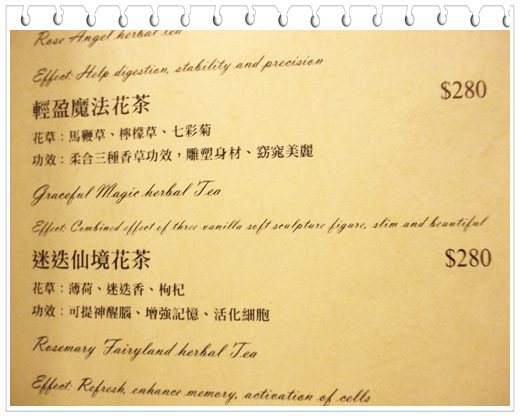 Rose Angel herbal tea
Effect: Help digestion, stability and precision
輕盈魔法花茶 $280
花草：馬鞭草、檸檬草、七彩菊
功效：柔合三種香草功效，雕塑身材、窈窕美麗
Graceful Magic herbal Tea
Effect: Combined effect of three vanilla soft sculpture figure, slim and beautiful
迷迭仙境花茶 $280
花草：薄荷、迷迭香、枸杞
功效：可提神醒腦、增強記憶、活化細胞
Rosemary Fairyland herbal Tea
Effect: Refresh, enhance memory, activation of cells